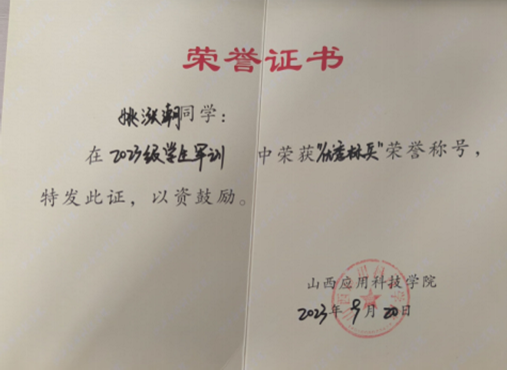 荣誉证书
姚涨潮同学：
在2023级学生军训中荣获“优秀标兵”荣誉称号，
特发此证，以资鼓励。
山西应用科技学院
2023年9月20日